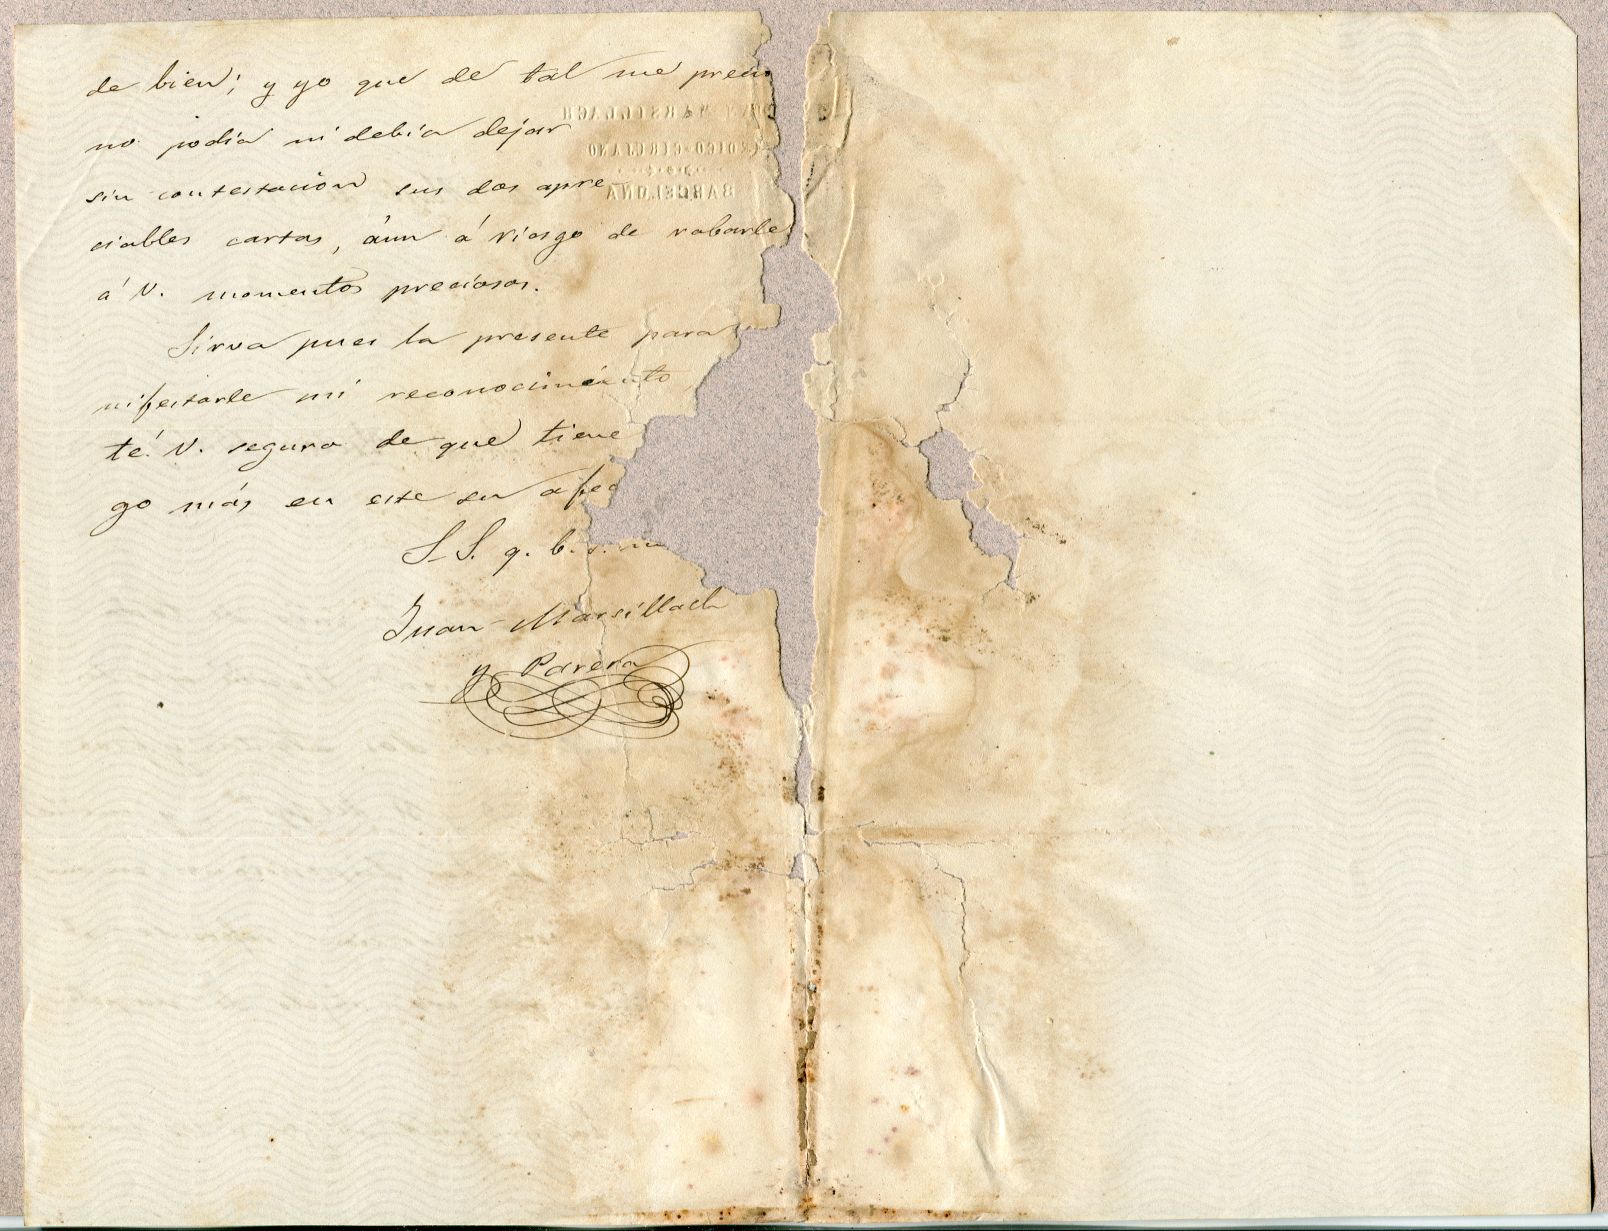 de bien; y yo que de tal me precio
no podia ni debia dejar
sin contestacion sus dos apre-
ciables cartas, áun á riesgo de robarle
á V. momentos preciosos.
Sirva pues la presente para
nifestarle mi reconocimiento,
té V. seguro de que tiene
go más en este su afec
S. S. q. b. s. m
Juan Marsillach
y Parera
JUAN MARSILLACH
MEDICO-CIRUJANO
BARCELONA